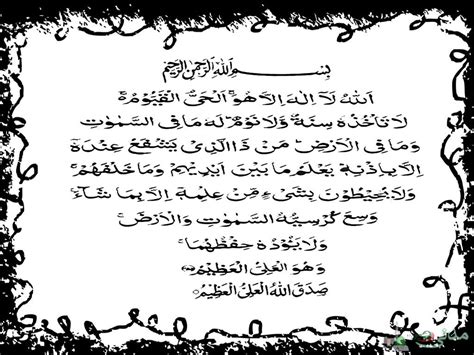 بِسْمِ اللهِ الرَّحْمٰنِ الرَّحِيْمِ
اَللهُ لَآ اِلٰهَ اِلَّا هُوَ ۚ اَلْحَىُّ الْقَيُّوْمُ ۚ
لَا تَأْخُذُهٗ سِنَةٌ وَّلَا نَوْمٌ ؕ لَهٗ مَا فِى السَّمٰوٰتِ
وَمَا فِى الْاَرْضِ ؕ مَنْ ذَا الَّذِىْ يَشْفَعُ عِنْدَهٗٓ
اِلَّا بِاِذْنِهٖ ؕ يَعْلَمُ مَا بَيْنَ اَيْدِيْهِمْ وَمَا خَلْفَهُمْ ۚ
وَلَا يُحِيْطُوْنَ بِشَىْءٍ مِّنْ عِلْمِهٖٓ اِلَّا بِمَا شَآءَ ۚ
وَسِعَ كُرْسِيُّهُ السَّمٰوٰتِ وَالْاَرْضَ ۚ
وَلَا يَئُوْدُهٗ حِفْظُهُمَا ۚ
وَهُوَ الْعَلِىُّ الْعَظِيْمُ
صَدَقَ اللهُ الْعَلِىُّ الْعَظِيْمُ